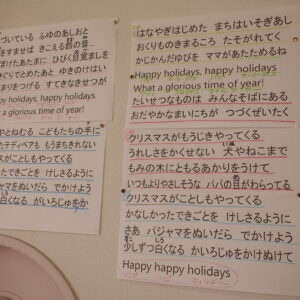 づいている ふゆのあしおと
をすませば きこえる鈴の音
ばけたあたまに ひびく目覚ましを
さぐりでとめたあと ゆきのけはい
まりをつげる すてきなきせつが
happy holidays, happy holidays
What a glorious time of year!
やとねむる こどもたちの手に
たテディベアも もうまちきれない
スがことしもやってくる
ったできごとを けしさるように
ジャマをぬいだら でかけよう
白くなる がいろじゅをか
はなやぎはじめた まちはいそぎあし
おくりものきまるころ たそがれてく
かじかんだゆびを ママがあたためるね
Happy holidays, happy holidays
What a glorious time of year!
たいせつなものは みんなそばにある
おだやかなまいにちが つづくぜいたく
クリスマスがもうじきやってくる
うれしさをかくせない 犬やねこまで
もみの木にともるあかりをうけて
いつもよりやさしそうな パパの目がわらってる
クリスマスがことしもやってくる
かなしかったできごとを けしさるように
さあ パジャマをぬいだら でかけよう
少しずつ白くなる がいろじゅをかけぬけて
Happy happy holidays